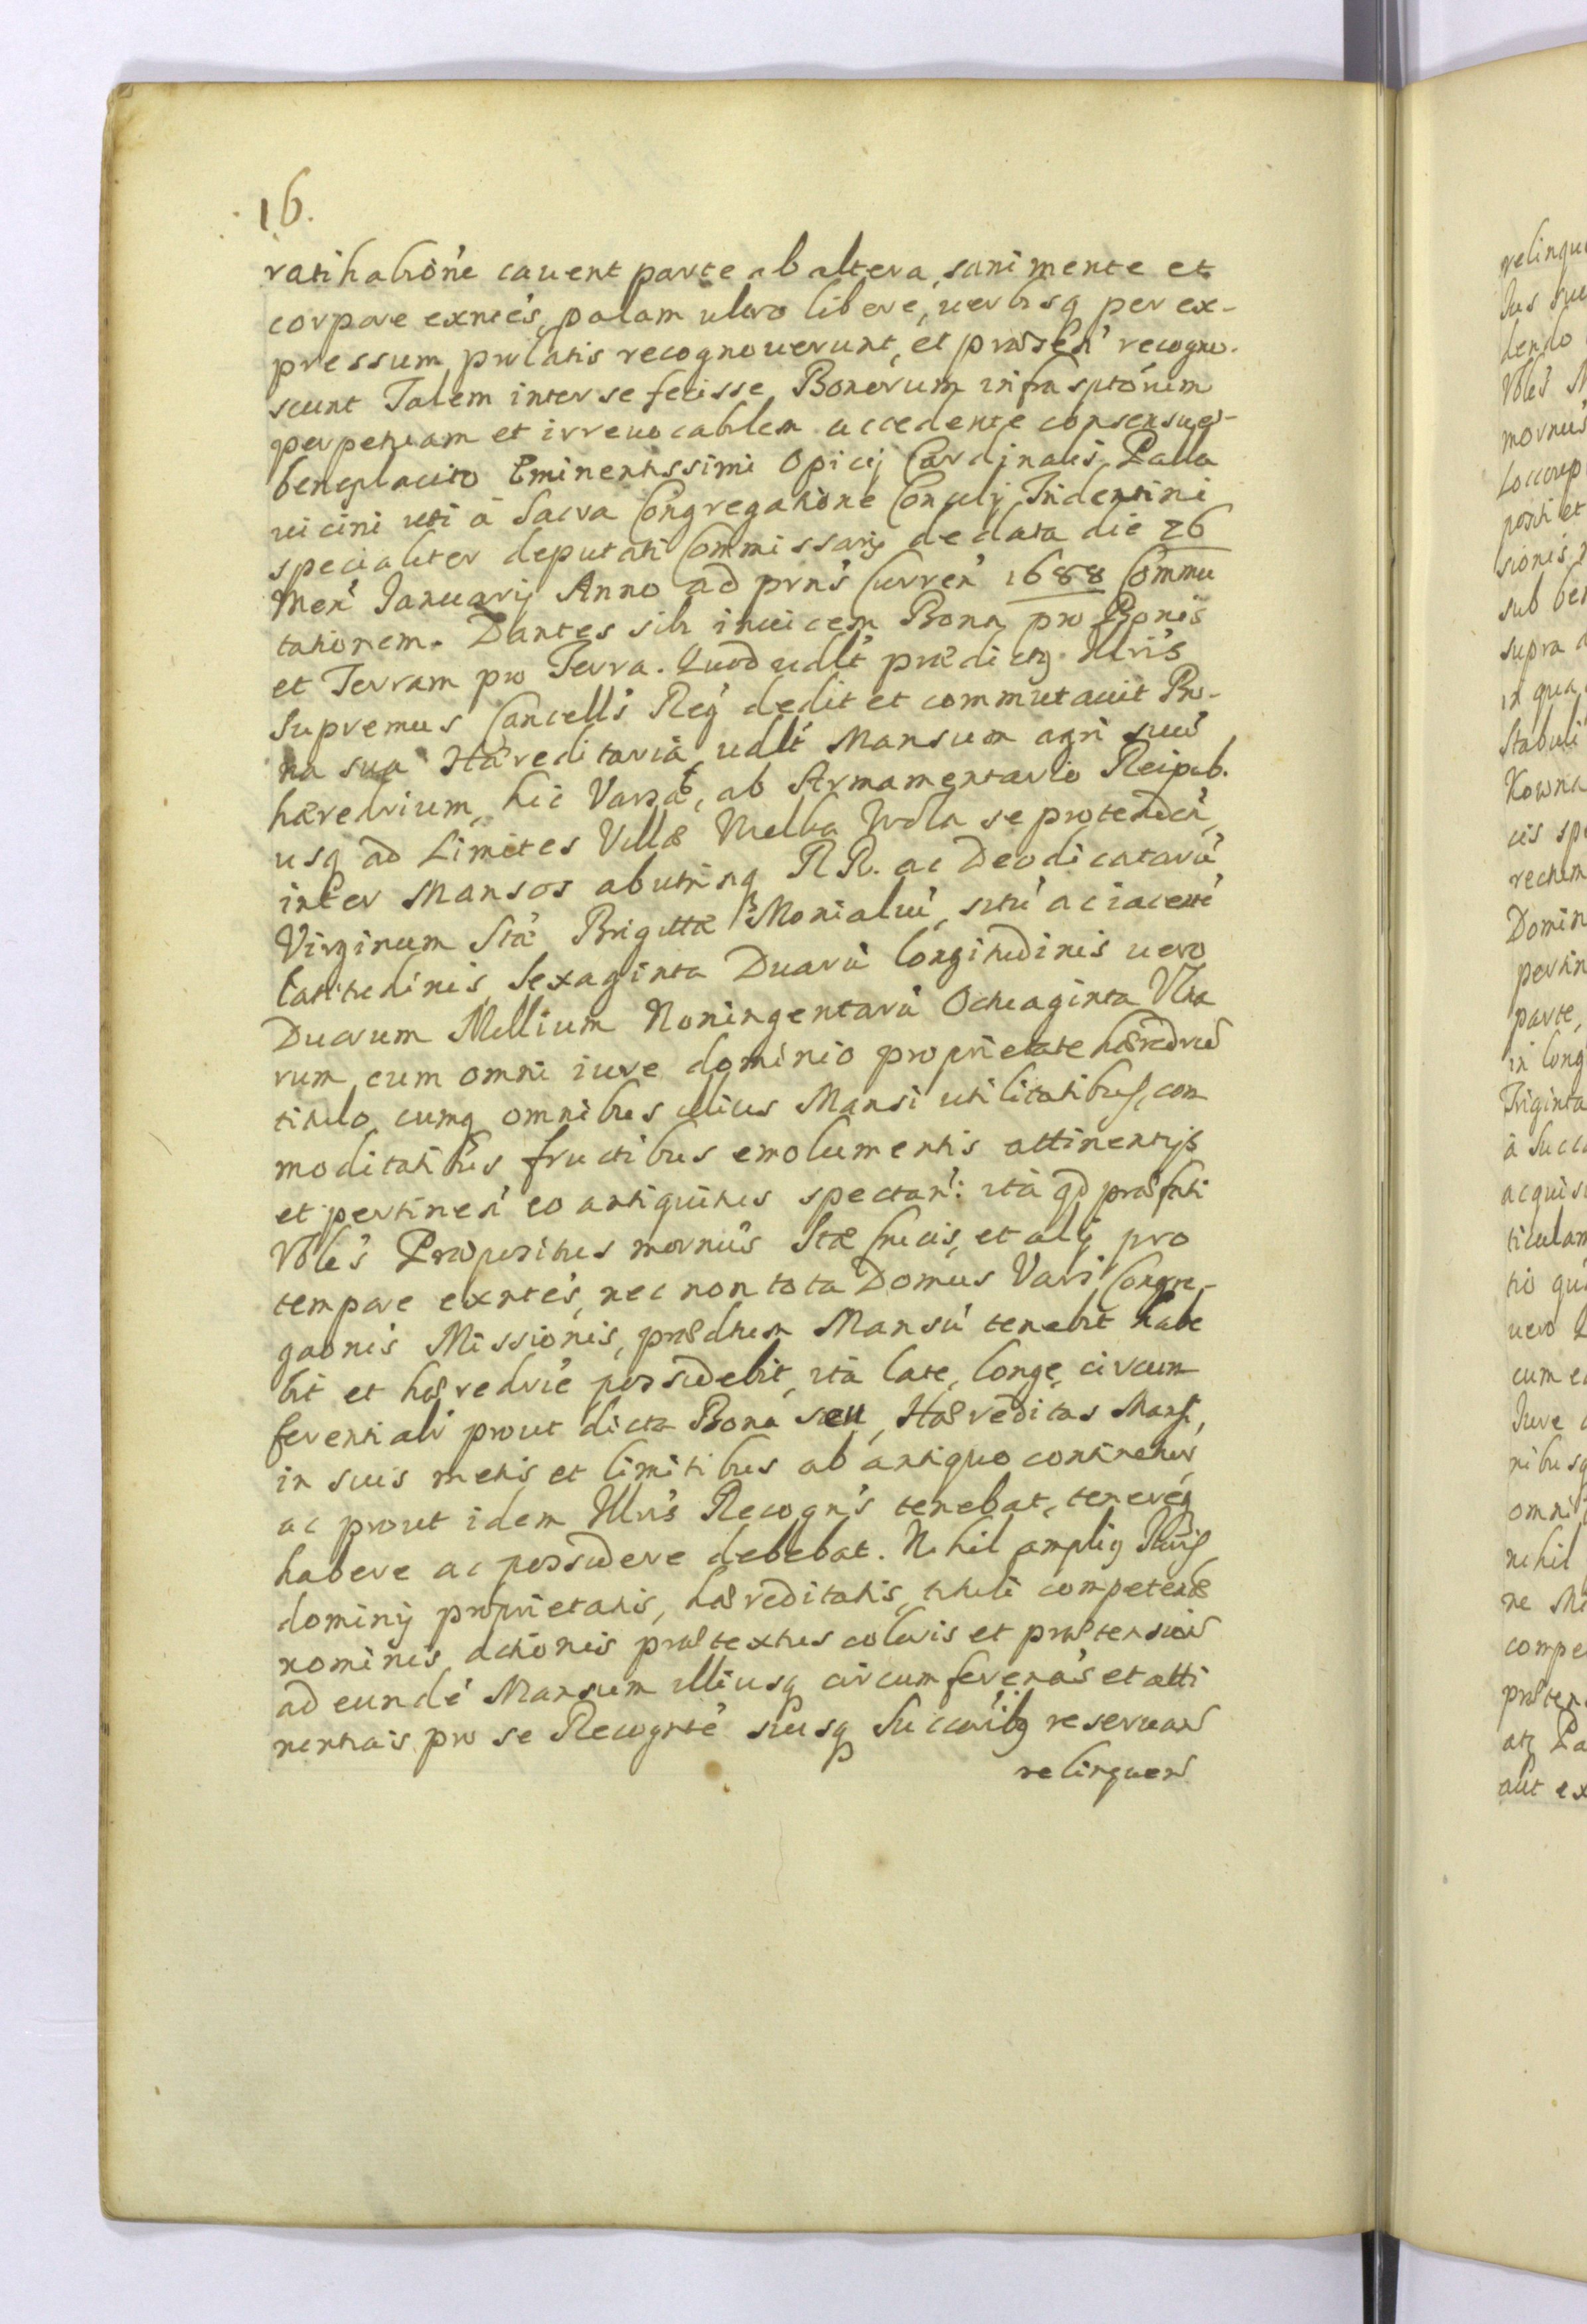 16.
ratihabióne cauent parte ab altera, sani mente et
corpore exntés, palam ultro libere, uerbisq per ex-
pressum prolatis recognouerunt, et præsén' recogno.
scunt Talem inter se fecisse Bonórum infrasptórum
perpetuam et irreuocablem accedente consensu et
beneplacito Eminentissimi Opicij Cardinalis Palla
uicini uti à Sacra Congregatione Concilij Tridentini
specialiter deputati Commissarij de data die 26
Men' Ianuarij Anno ad prns' Curren' 1688 Commu
tationem. Dantes sibi inuicem Bona pro Bonis
et Terram pro Terra. Quod udlt' prædictq Illris
Supremus Cancells' Reg' dedit et commutauit Bo-
na sua Hæreditaria udlt' Mansum agri suu'
hæredrium, hic Varsæ, ab Armamentario Reipub.
usq ad Limites Villæ Wielka Wola se protendén'
inter Mansos abutrinq RR. ac Deo dicatarú
Virginum Stæ Brigittæ Monialiú, sitú ac iacenté
latitudinis Sexaginta Duarú longitudinis uero
Duarum Millium Noningentarú Octuaginta Vlna
rum, cum omni iure dominio proprietate hæredrio
titulo, cumq omnibus illius Mansi utilitatibus, com
moditatibus fructibus emolumentis attinentijs
et pertinen' eo antiquitus spectan': ità qd præfati
Vbles' Præpositus mornus' Stæ Crucis, et alij pro
tempore exntés, nec non tota Domus Vars' Congre-
gaonis Missionis, prædtum Mansú tenebit habe
bit et hæredrie possidebit, ità late, longe, circum
ferentialr prout dicta Bona seu Hæreditas Mansi,
in suis metis et limitibus ab antiquo continetur
ac prout idem Illris Recogn's tenebat, teneréq
habere ac possidere debebat. Nihil ampliq Iuris
dominij proprietatis, hæreditatis, tituli competenæ
nominis, actionis prætextus coloris et prætensionis
ad eundé Mansum illiusq circumferenas et atti
nentias pro se Recognté suisq Succoribq reseruan
relinquen